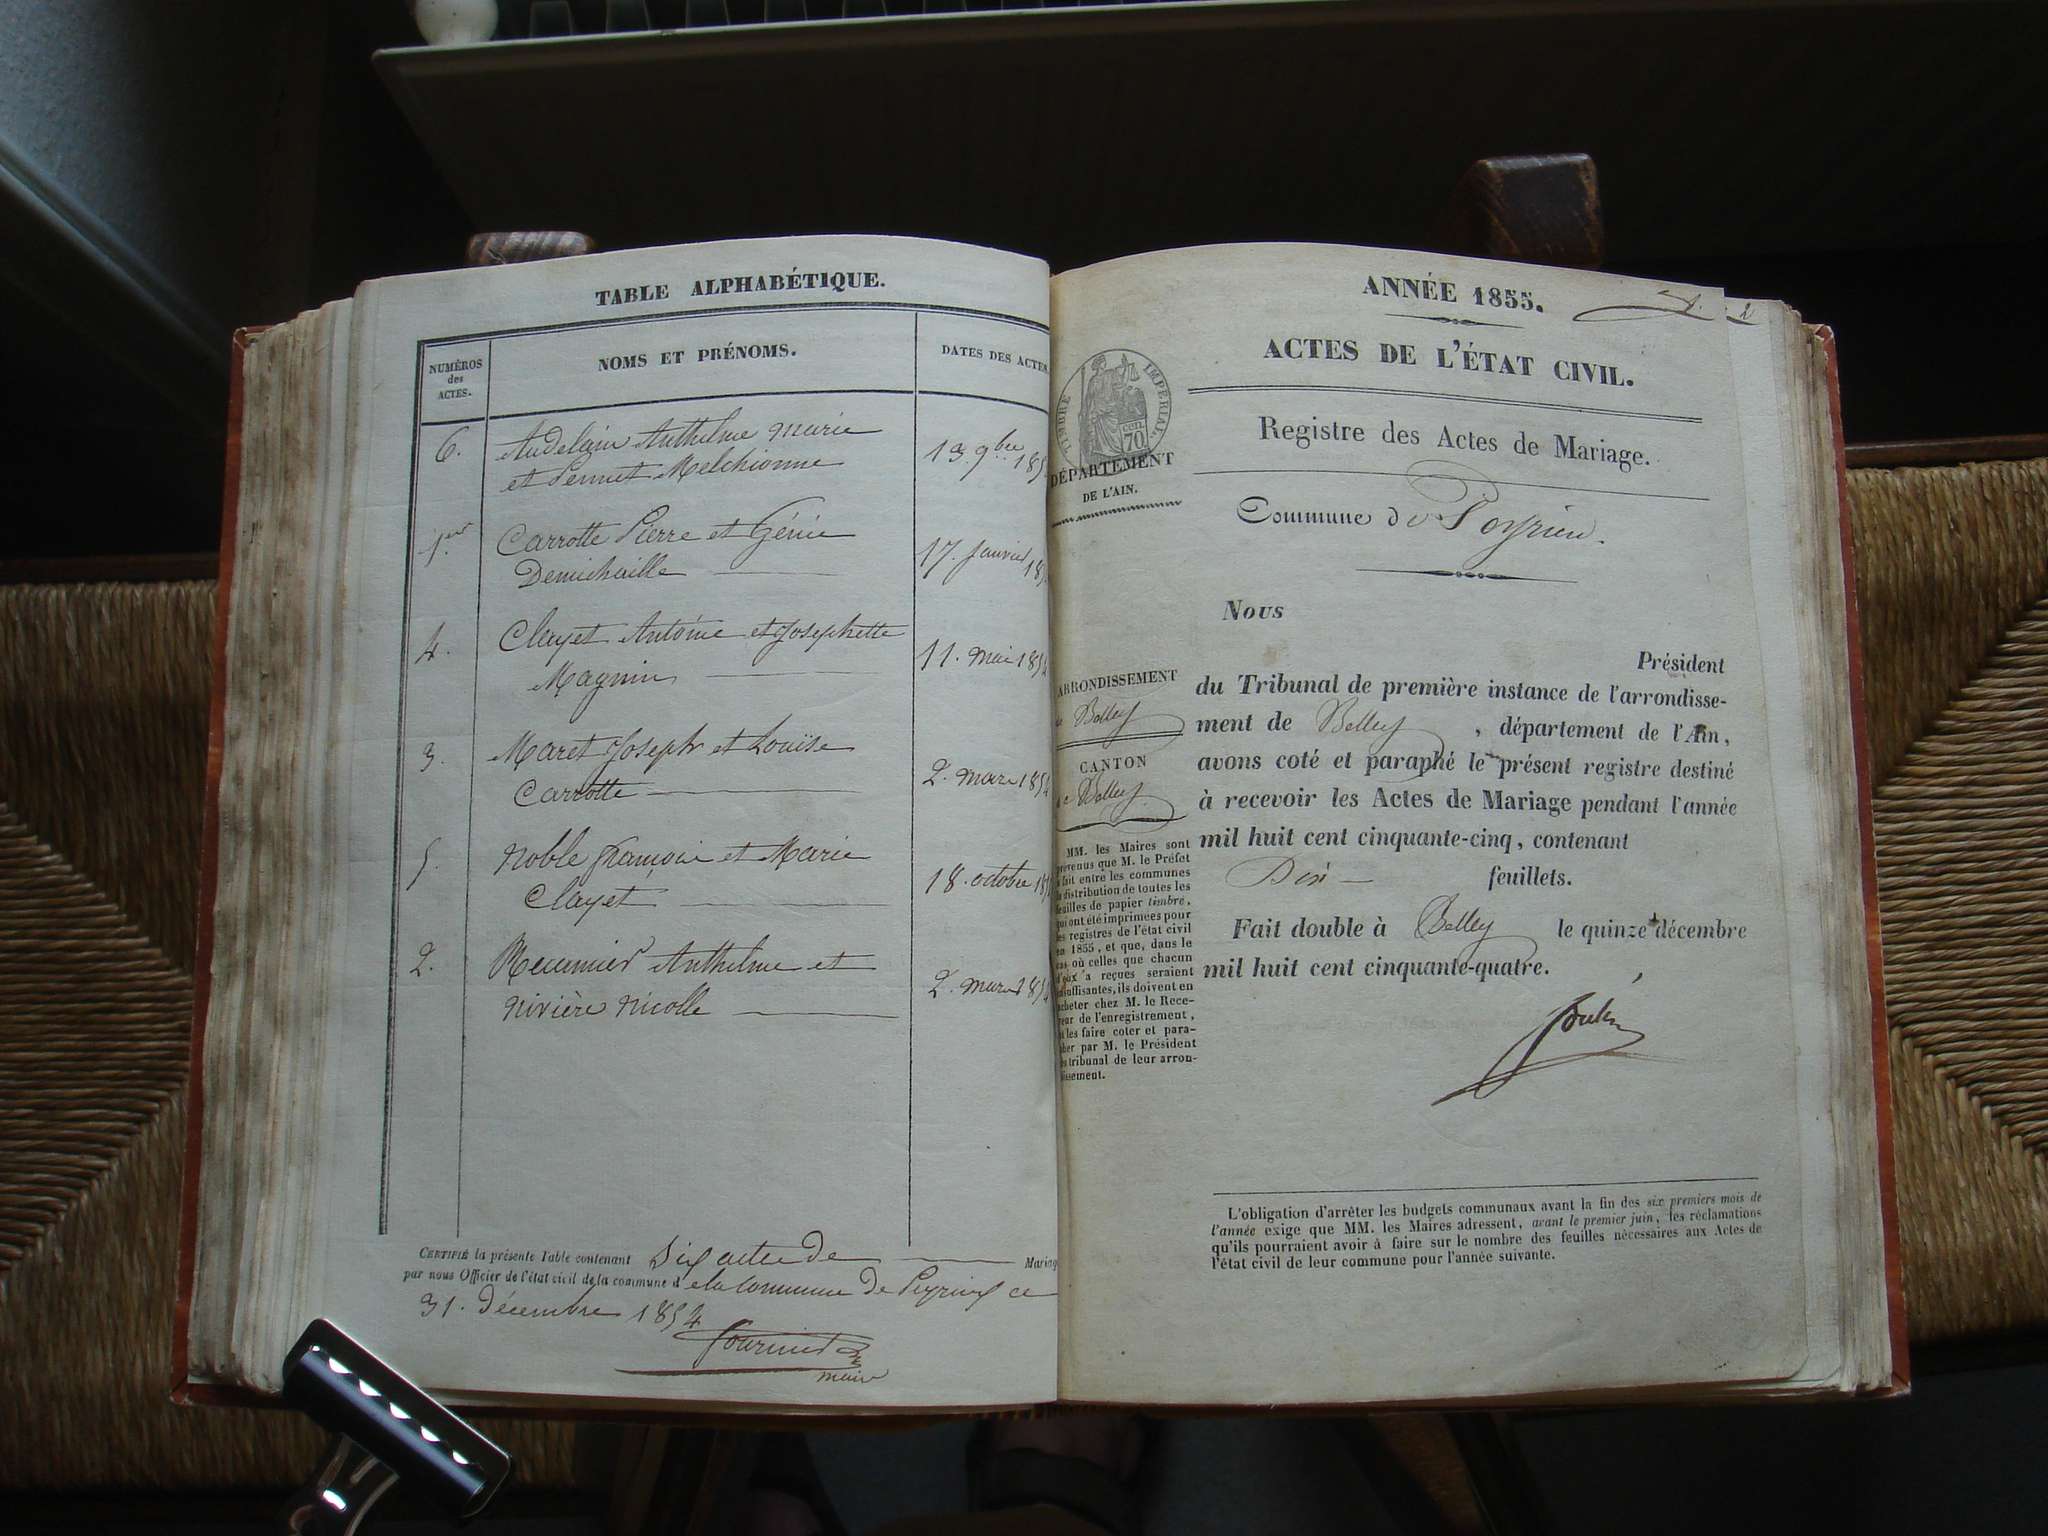 TABLE ALPHABÉTIQUE.
NUMÉROS
des
ACTES.
NOMS ET PRÉNOMS.
DATES DES ACTES
6.
Audelain Anthelme Marie
et Pennet Melchionne
13. 9bre 185
1er
Carrotte Pierre et Génie
Demichaille
17. Janvier 18
4.
Clayet Antoine et Josephette
Magnin
11. mai 1854
3.
Maret Joseph et Louïse
Carrotte
2. mars 1854
5.
Noble françois et Marie
Clayet
18. octobre 18
2.
Recumier Anthelme et
Rivière Nicolle
2. mars 185
CERTIFIÉ la présente Table contenant Six actes de Mariag
par nous Officier de l'état civil de la commune d e la commune de Peyrieux ce
31. décembre 1854
fournier
maire
ANNÉE 1855.
2
ACTES DE L'ÉTAT CIVIL.
TIMBRE IMPÉRIAL.
cen.
70
DÉPARTEMENT
DE L'AIN.
Registre des Actes de Mariage.
Commune de Peyrieu.
Nous
Président
du Tribunal de première instance de l'arrondisse-
ment de Belley, département de l'Ain,
avons coté et paraphé le présent registre destiné
à recevoir les Actes de Mariage pendant l'année
mil huit cent cinquante-cinq, contenant
Dix feuillets.
Fait double à Belley le quinze décembre
mil huit cent cinquante-quatre.
ARRONDISSEMENT
de Belley
CANTON
de Belley
MM. les Maires sont
prévenus que M. le Préfet
a fait entre les communes
la distribution de toutes les
feuilles de papier timbré,
qui ont été imprimées pour
les registres de l'état civil
en 1855, et que, dans le
cas où celles que chacun
d'eux a reçues seraient
insuffisantes, ils doivent en
acheter chez M. le Rece-
veur de l'enregistrement,
et les faire coter et para-
pher par M. le Président
du tribunal de leur arron-
dissement.
L'obligation d'arrêter les budgets communaux avant la fin des six premiers mois de
l'année exige que MM. les Maires adressent, avant le premier juin, les réclamations
qu'ils pourraient avoir à faire sur le nombre des feuilles nécessaires aux Actes de
l'état civil de leur commune pour l'année suivante.